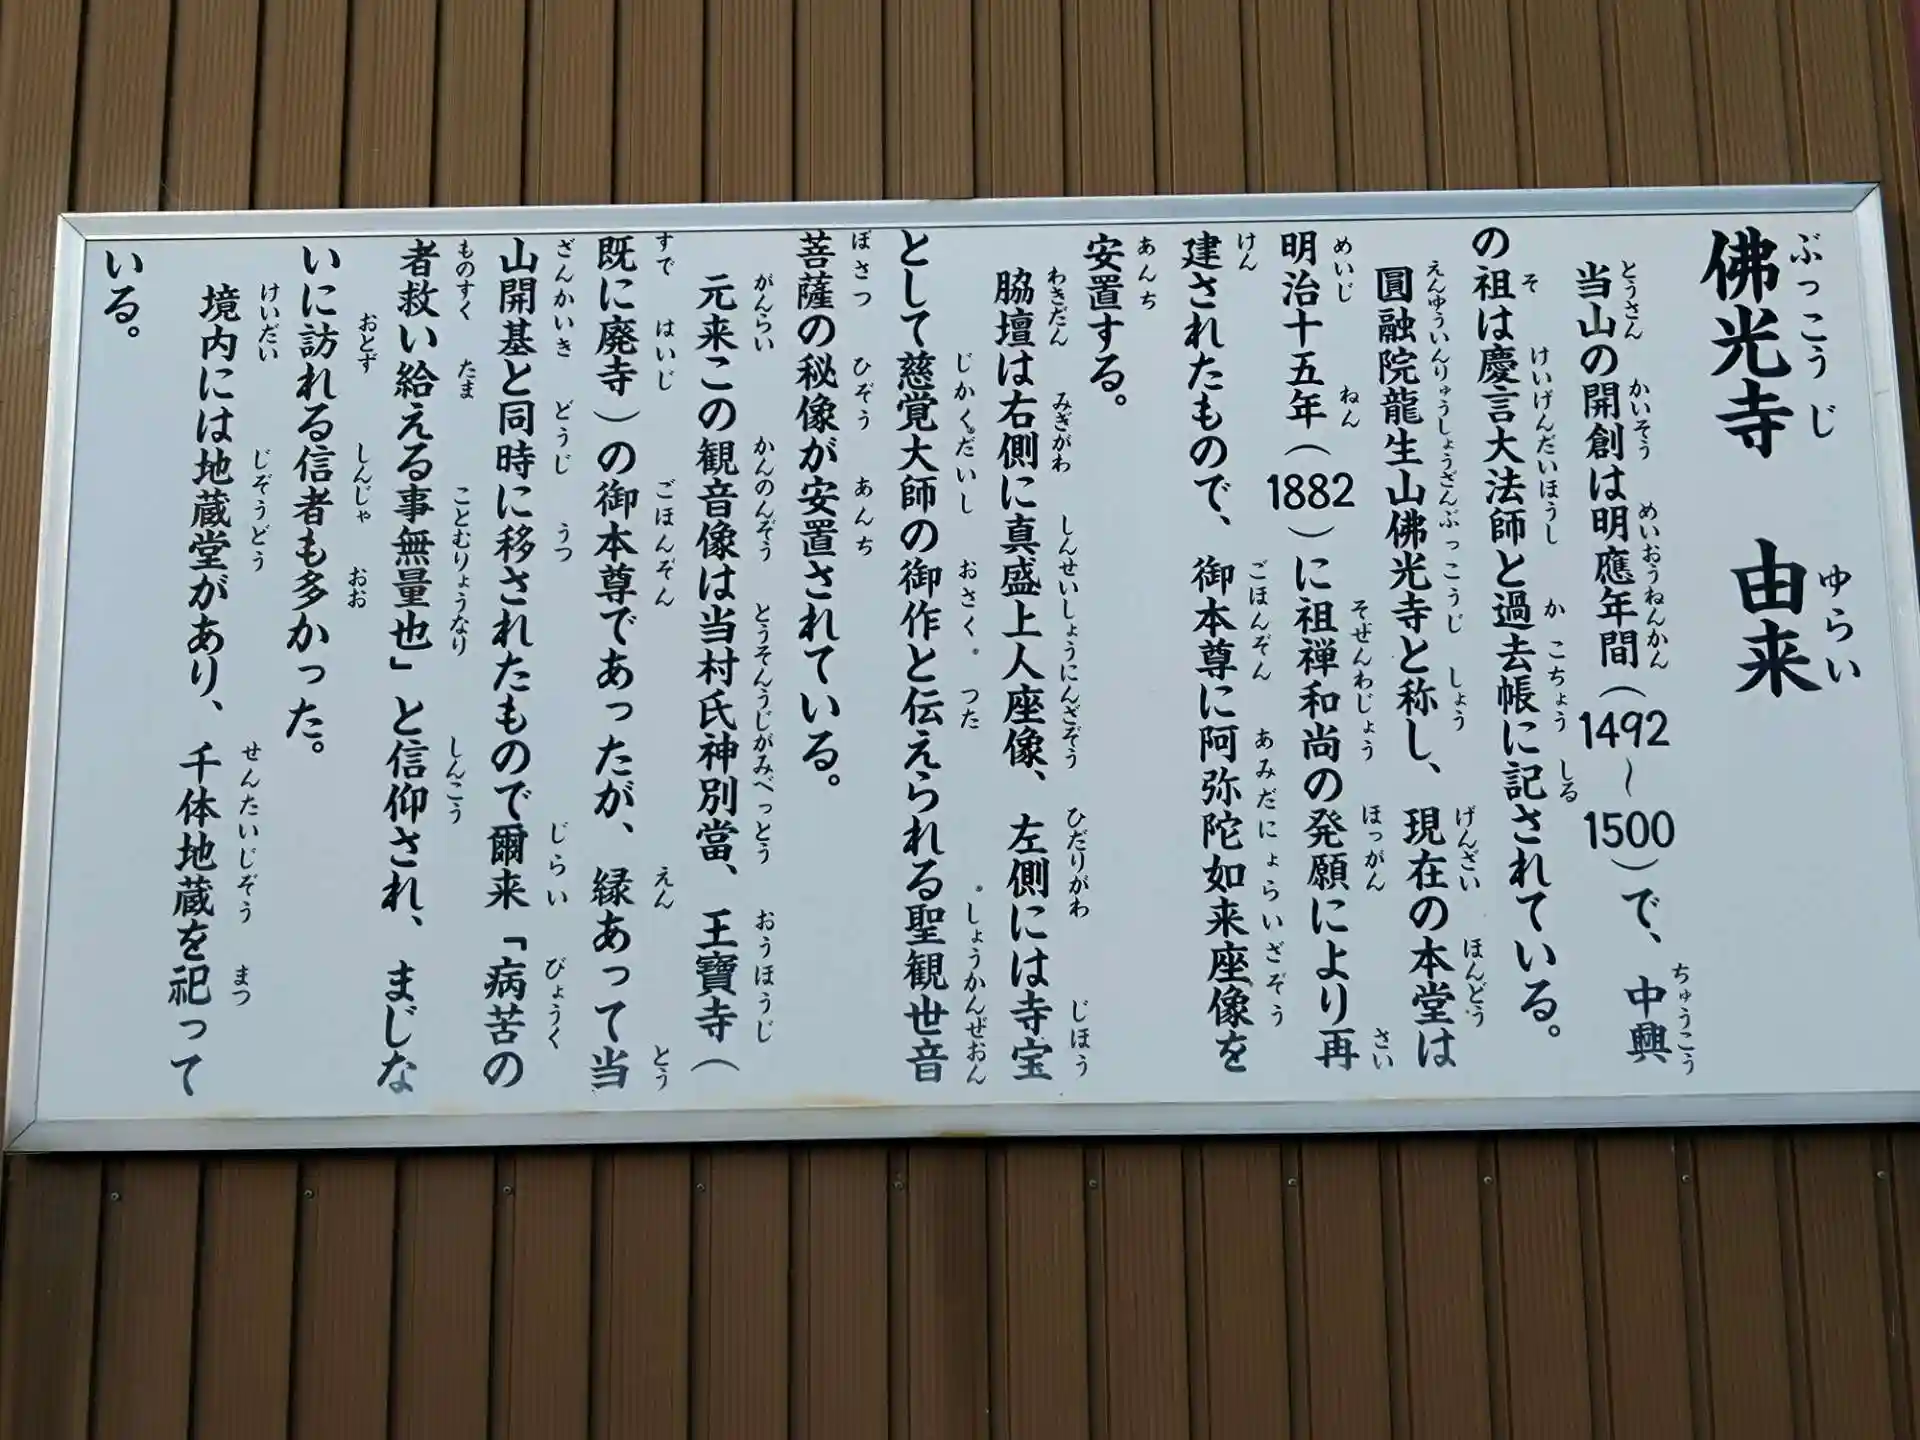 佛光寺　由来
当山の開創は明應年間（1492～1500）で、中興
の祖は慶言大法師と過去帳に記されている。
圓融院龍生山佛光寺と称し、現在の本堂は
明治十五年（1882）に祖禅和尚の発願により再
建されたもので、御本尊に阿弥陀如来座像を
安置する。
脇壇は右側に真盛上人座像、左側には寺宝
として慈覚大師の御作と伝えられる聖観世音
菩薩の秘像が安置されている。
元来この観音像は当村氏神別當、王寶寺（
既に廃寺）の御本尊であったが、縁あって当
山開基と同時に移されたもので爾来「病苦の
者救い給える事無量也」と信仰され、まじな
いに訪れる信者も多かった。
境内には地蔵堂があり、千体地蔵を祀って
いる。